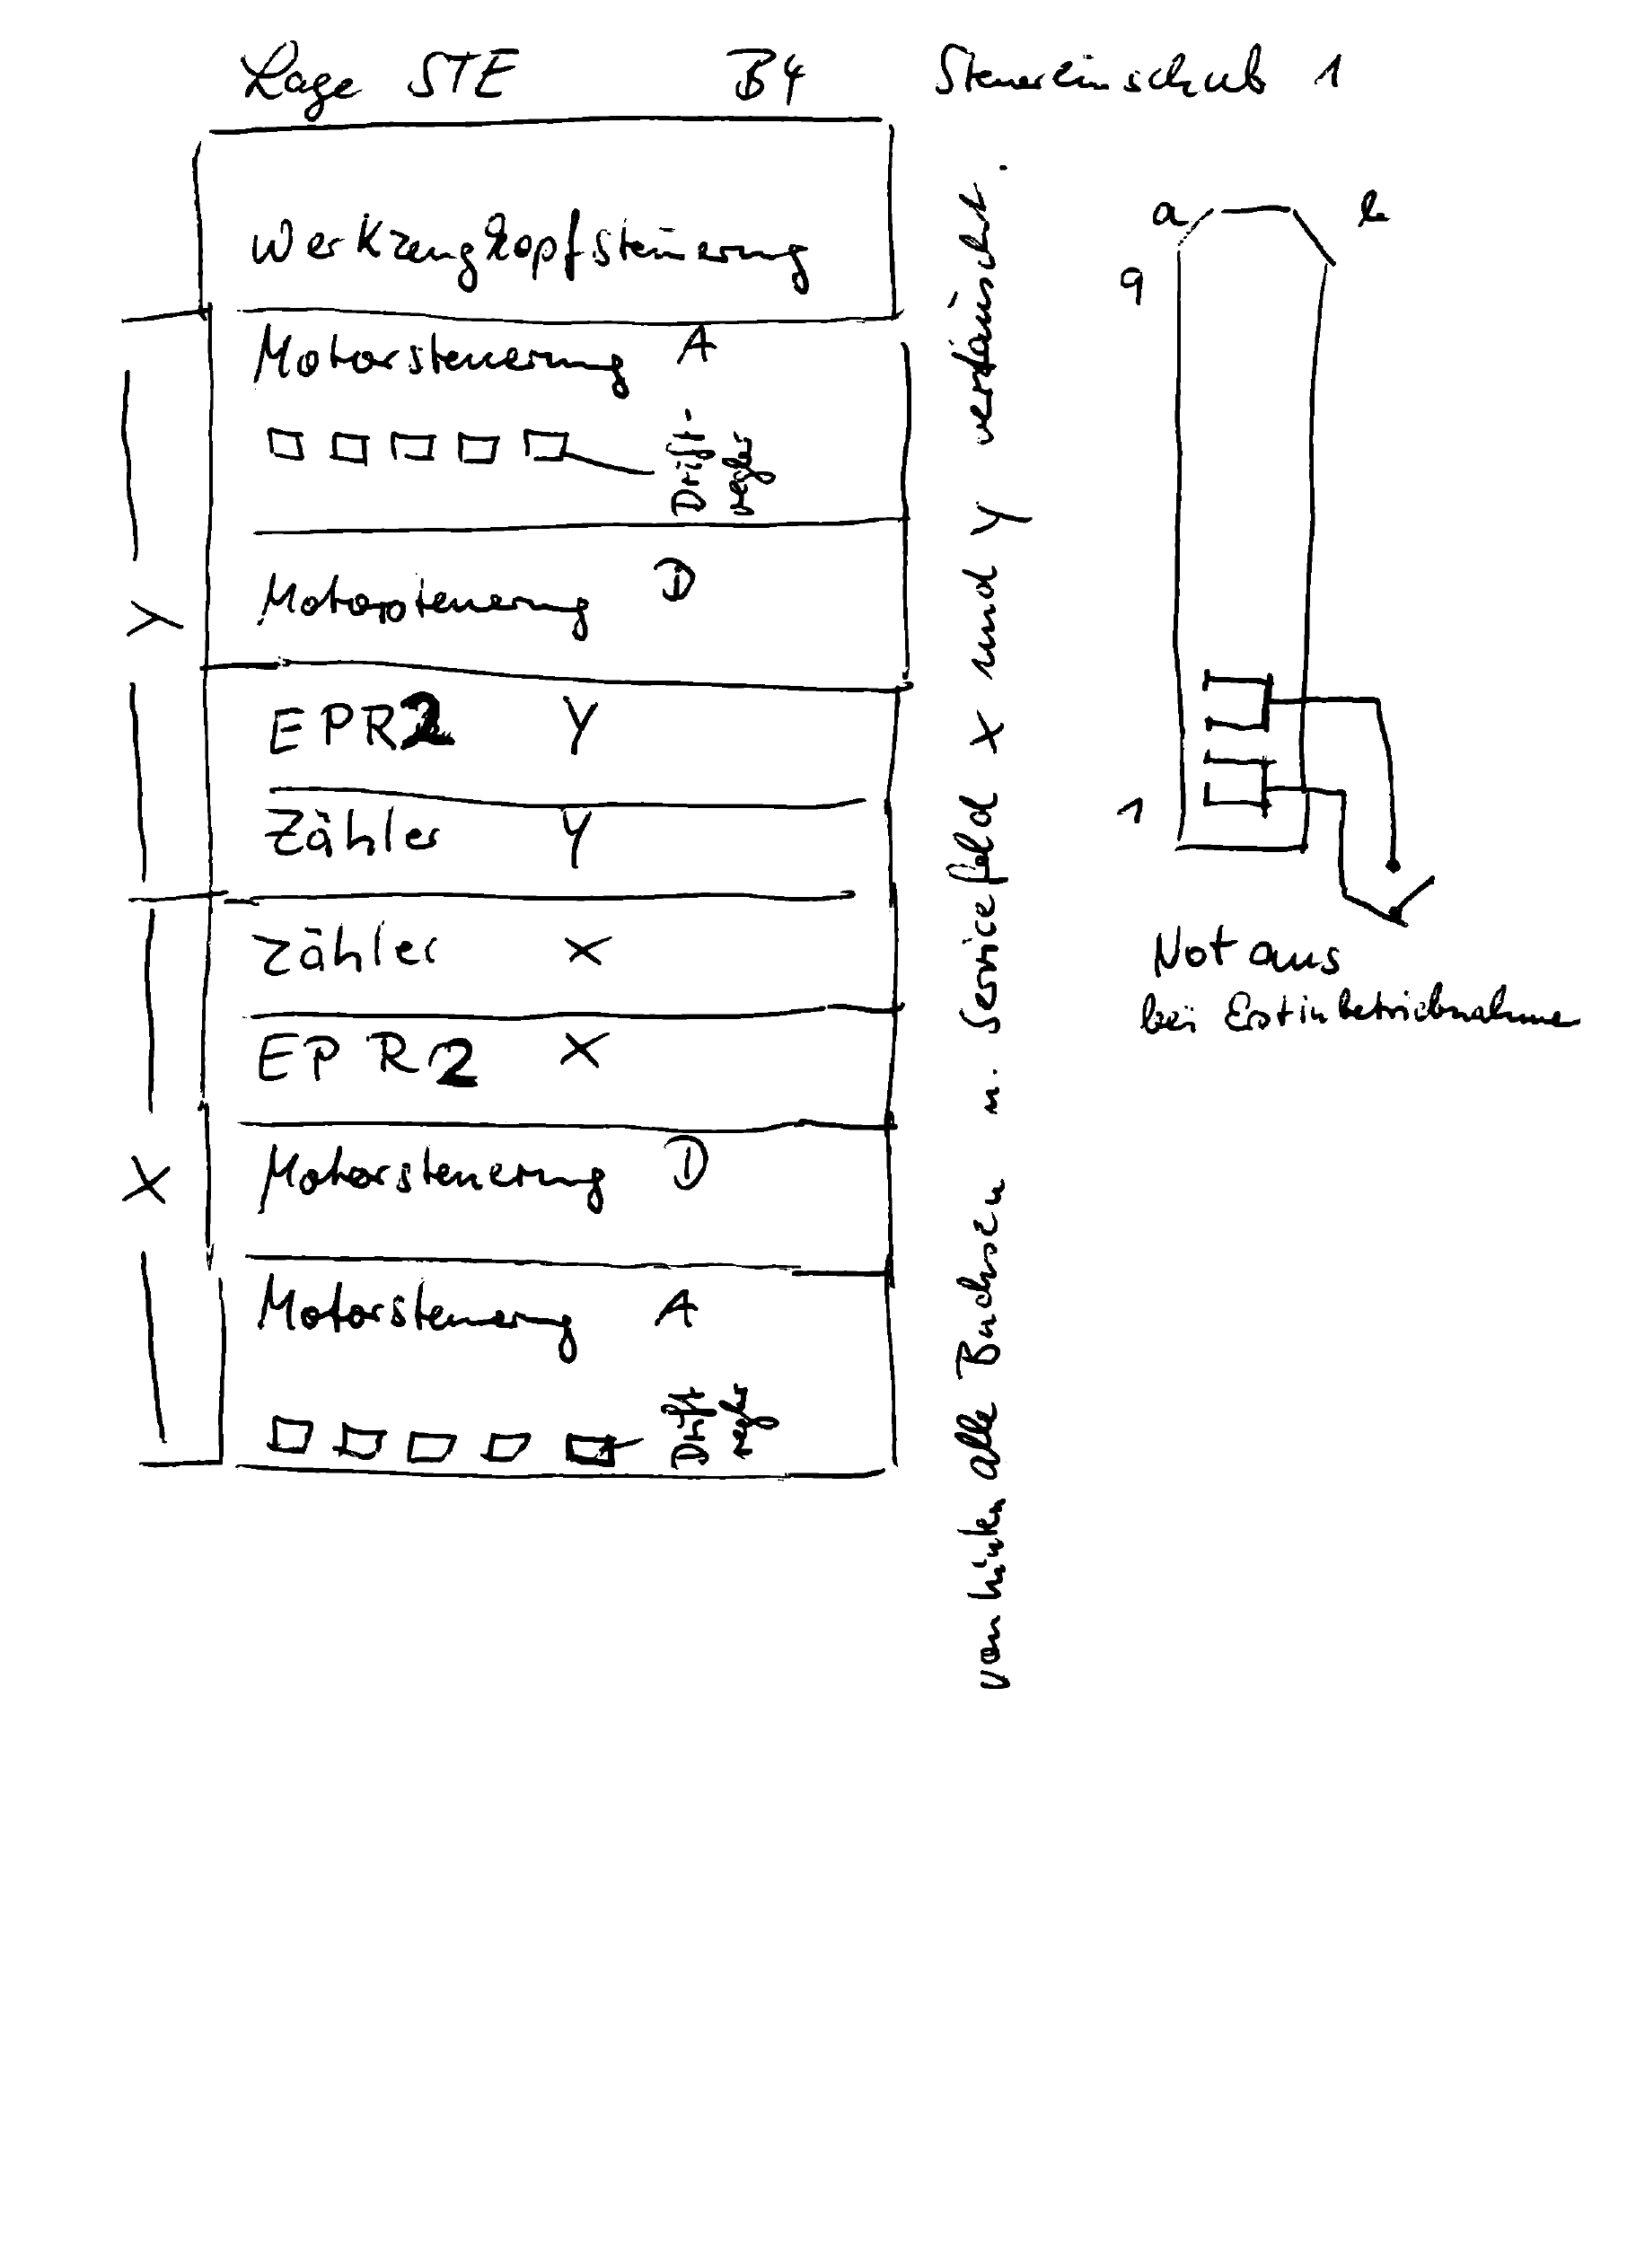 Lage STE B4 Steuereinschub 1
Werkzeugkopfsteuerung
Motorsteuerung A
Drift-
regler
Motorsteuerung D
Y
EPR2 Y
Zähler Y
Zähler X
EPR2 X
Motorsteuerung D
X
Motorsteuerung A
Drift
regler
von hinten alle Buchsen u. Servicefeld X und Y vertauscht.
a b
9
1
Not aus
bei Erstinbetriebnahme